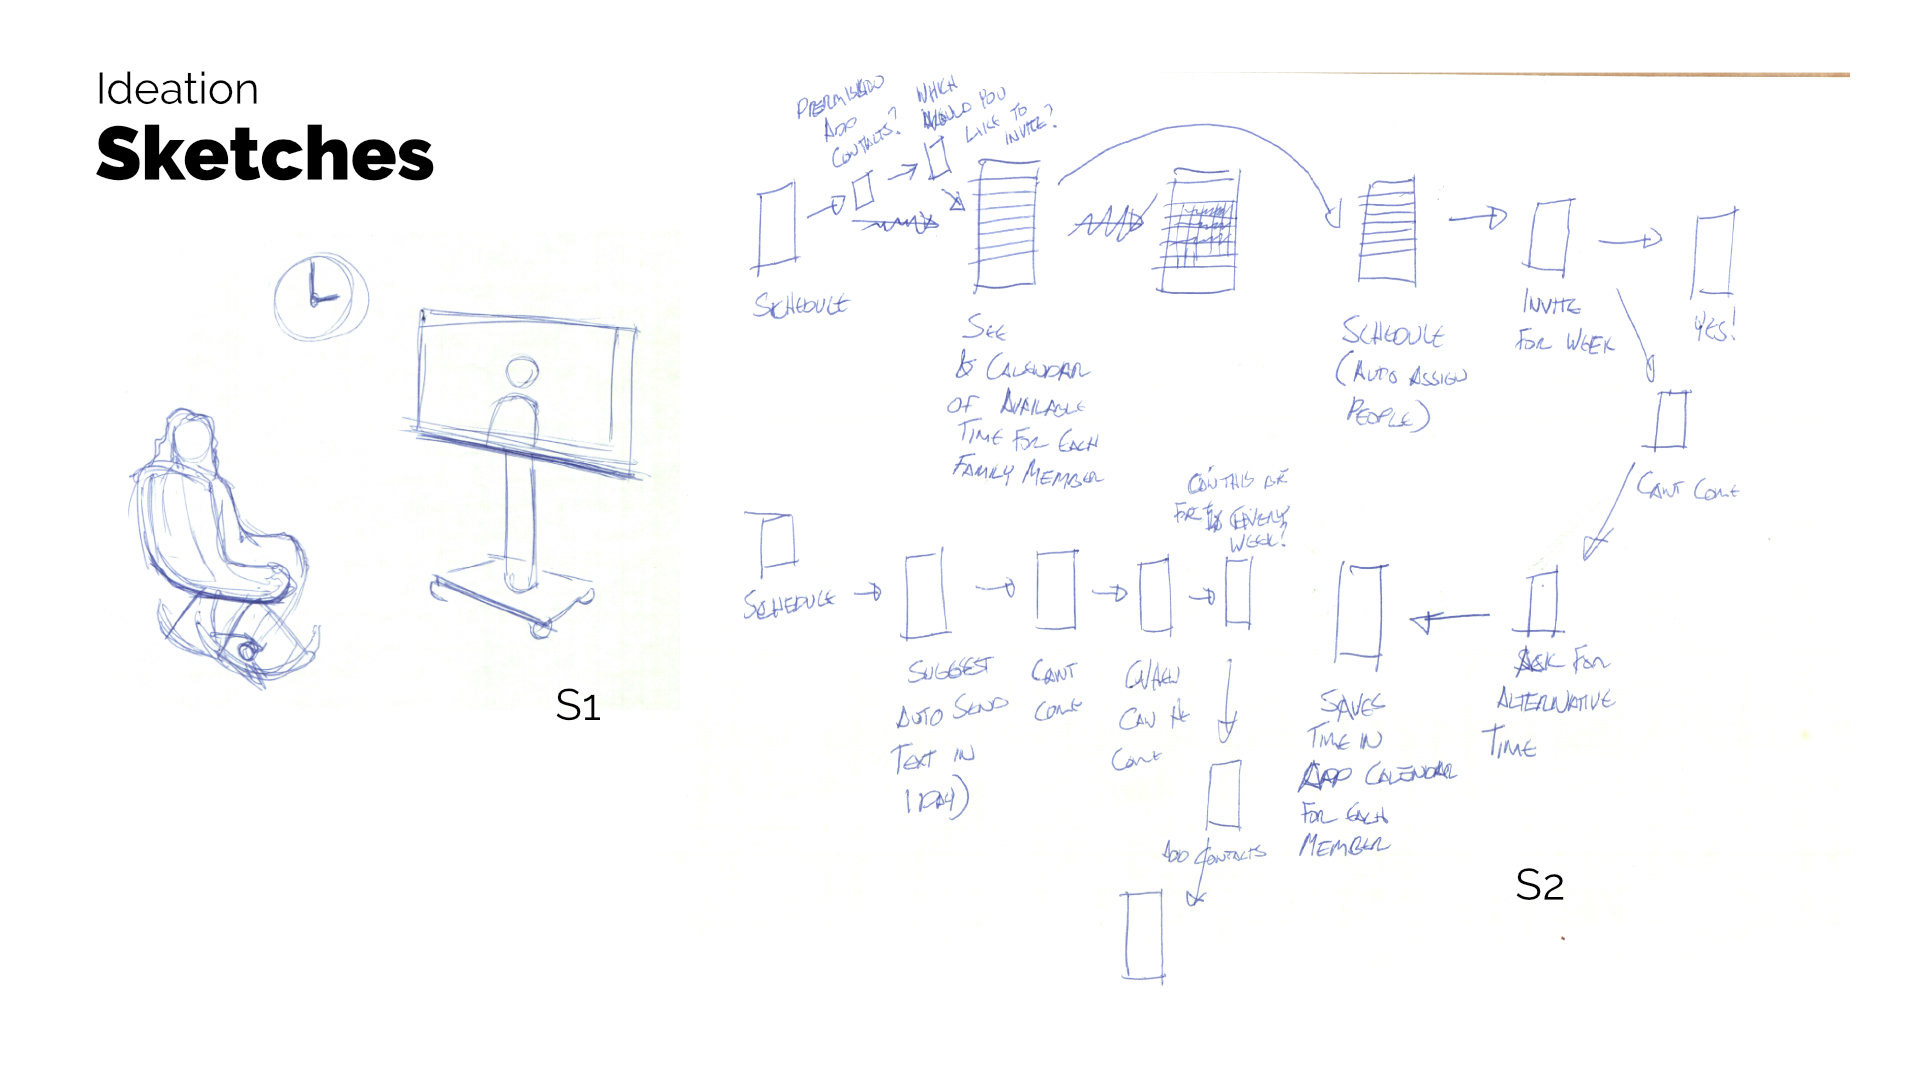 Ideation
Sketches
ADD
CONTACTS?
WHICH
WOULD YOU
LIKE TO
INVITE?
SCHEDULE
SEE
CALENDAR
OF AVAILABLE
TIME FOR EACH
FAMILY MEMBER
SCHEDULE
(AUTO ASSIGN
PEOPLE)
INVITE
FOR WEEK
YES!
CANT COME
SCHEDULE
SUGGEST
AUTO SEND
TEXT IN
1 DAY)
CANT
COME
WHEN
CAN HE
COME
CAN THIS BE
FOR EVERY
WEEK?
ADD CONTACTS
ASK FOR
ALTERNATIVE
TIME
SAVES
TIME IN
APP CALENDAR
FOR EACH
MEMBER
S1
S2